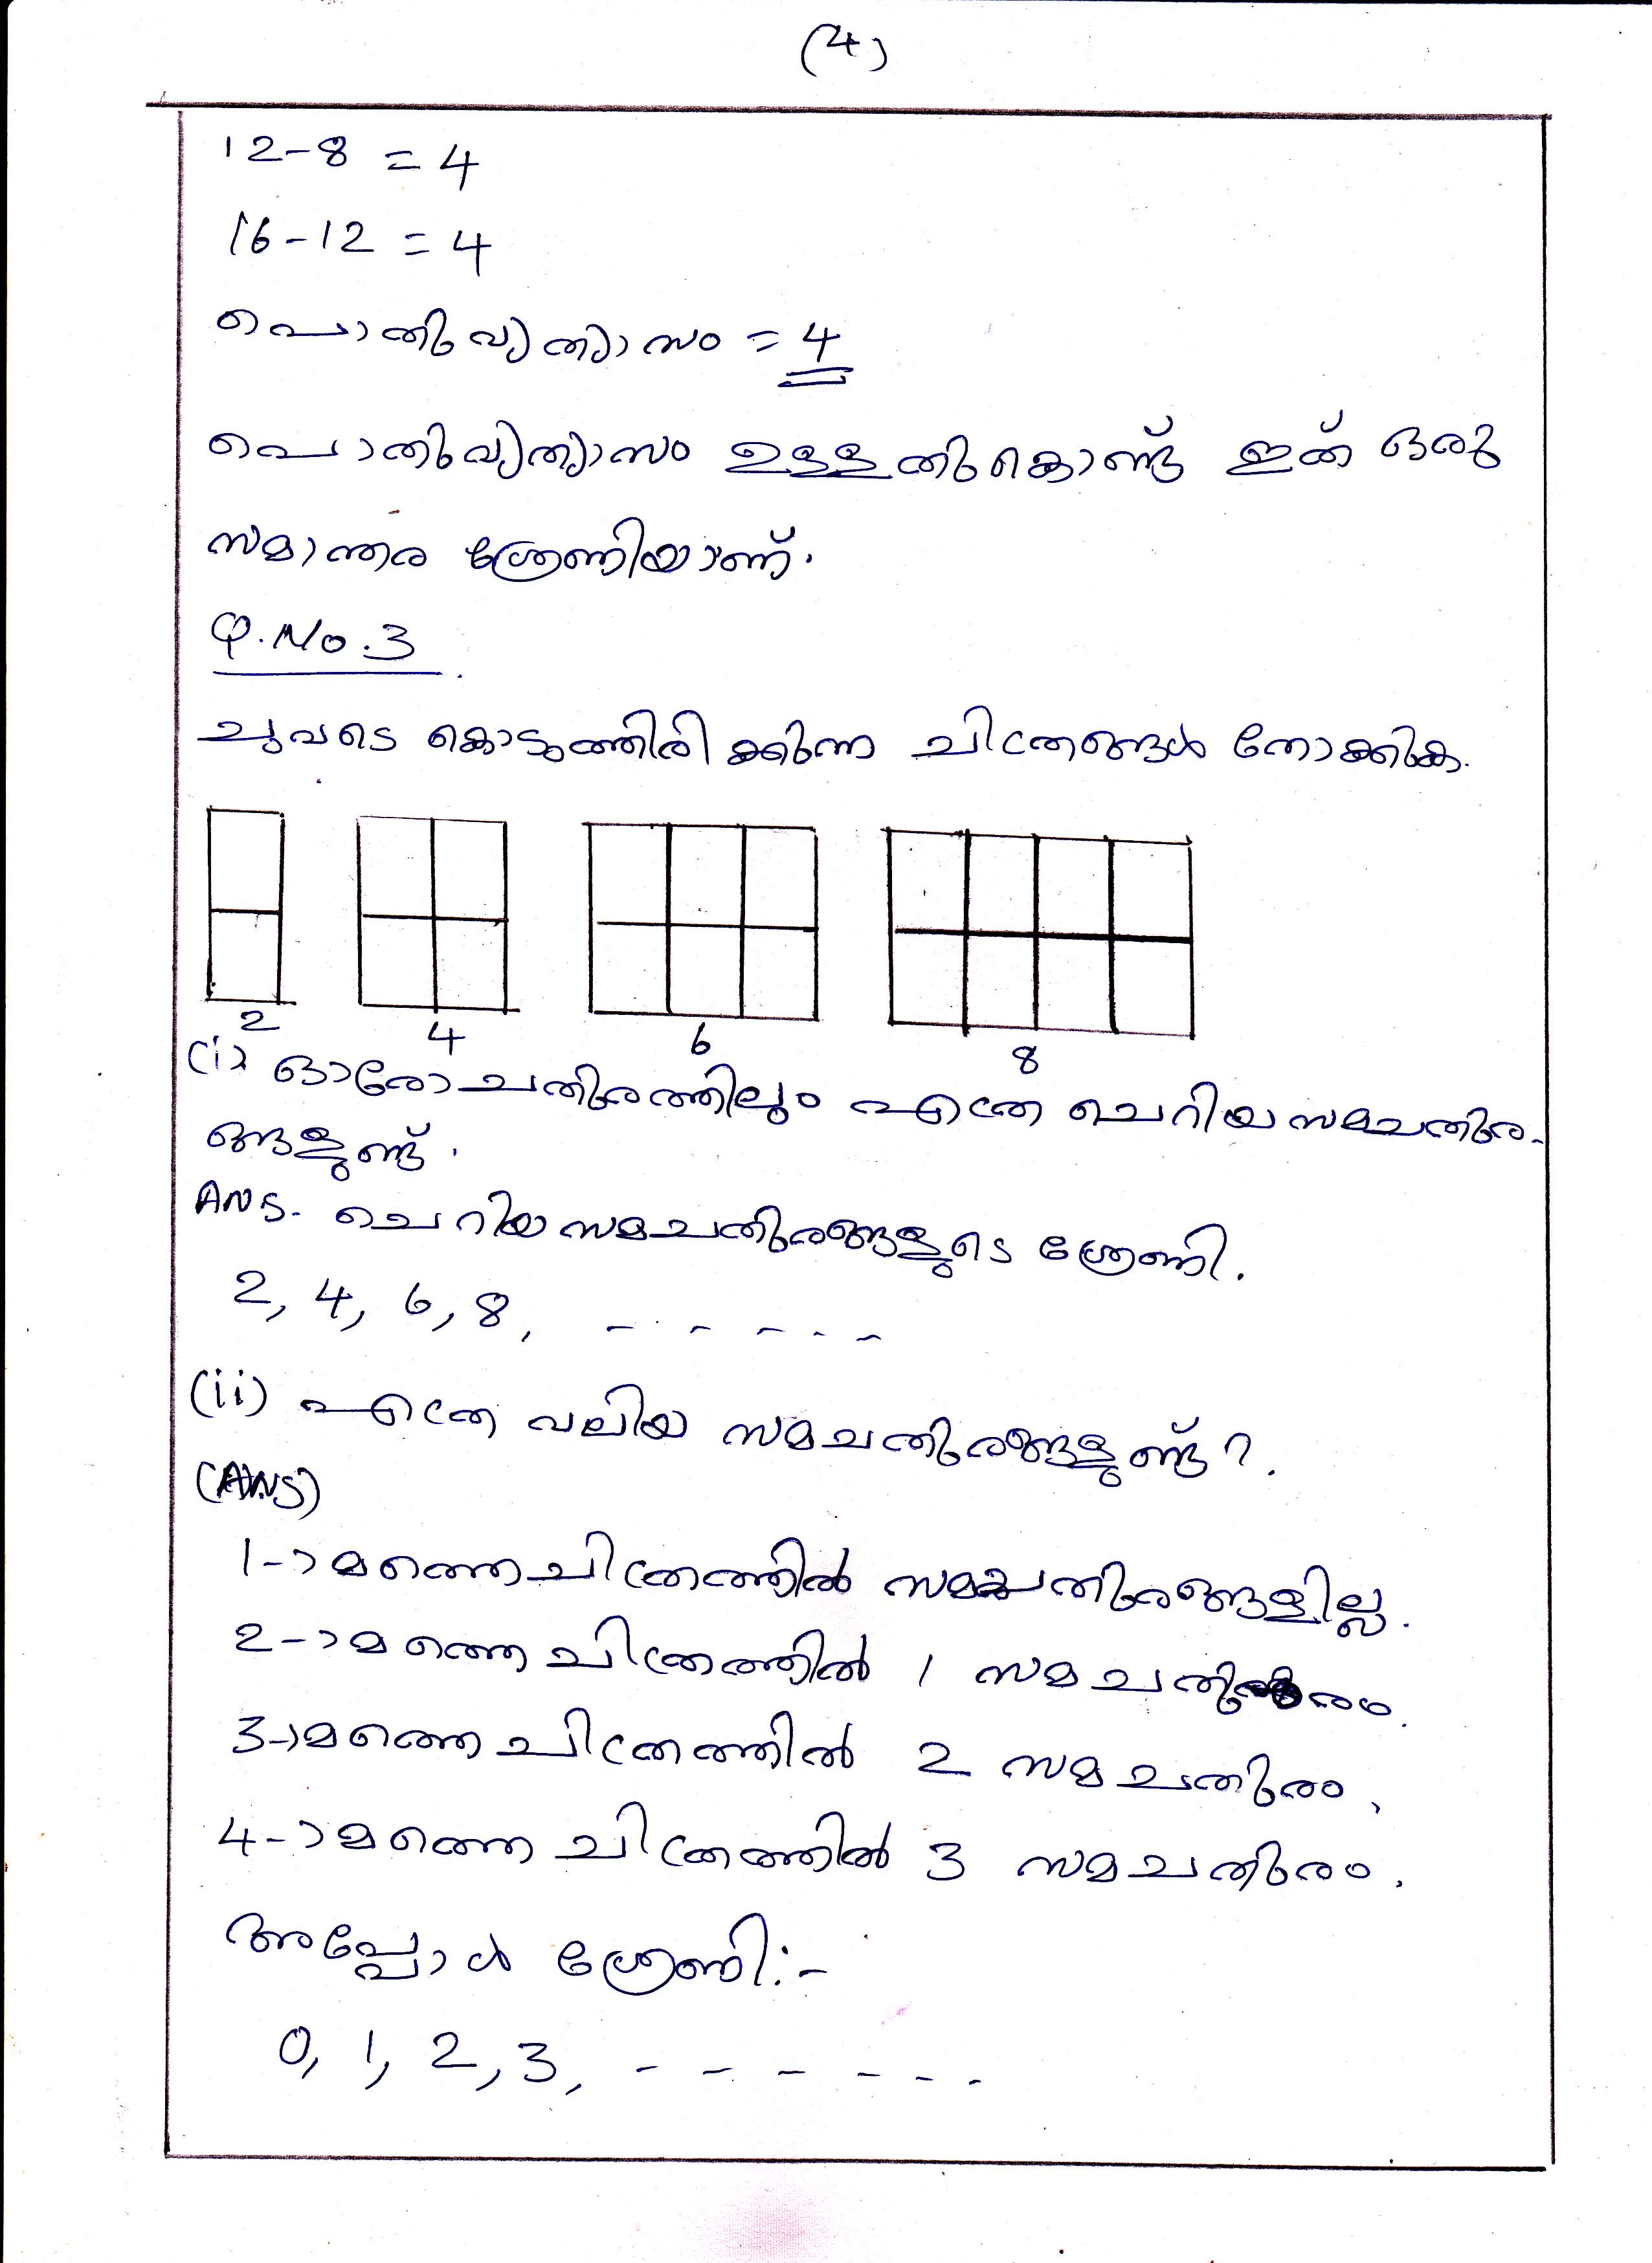 (4)
12-8 = 4
16-12 = 4
പൊതുവ്യത്യാസം = 4
പൊതുവ്യത്യാസം ഉള്ളതുകൊണ്ട് ഇത് ഒരു
സമാന്തര ശ്രേണിയാണ്.
Q.No.3
ചുവടെ കൊടുത്തിരിക്കുന്ന ചിത്രങ്ങൾ നോക്കുക.
2 4 6 8
(i) ഓരോ ചതുരത്തിലും എത്ര ചെറിയ സമചതുര-
ങ്ങളുണ്ട്.
ANS. ചെറിയ സമചതുരങ്ങളുടെ ശ്രേണി.
2, 4, 6, 8, - - - - - -
(ii) എത്ര വലിയ സമചതുരങ്ങളുണ്ട്?.
(ANS)
1-ാമത്തെ ചിത്രത്തിൽ സമചതുരങ്ങളില്ല.
2-ാമത്തെ ചിത്രത്തിൽ 1 സമചതുരം.
3-ാമത്തെ ചിത്രത്തിൽ 2 സമചതുരം.
4-ാമത്തെ ചിത്രത്തിൽ 3 സമചതുരം.
അപ്പോൾ ശ്രേണി:-
0, 1, 2, 3, - - - - - - -